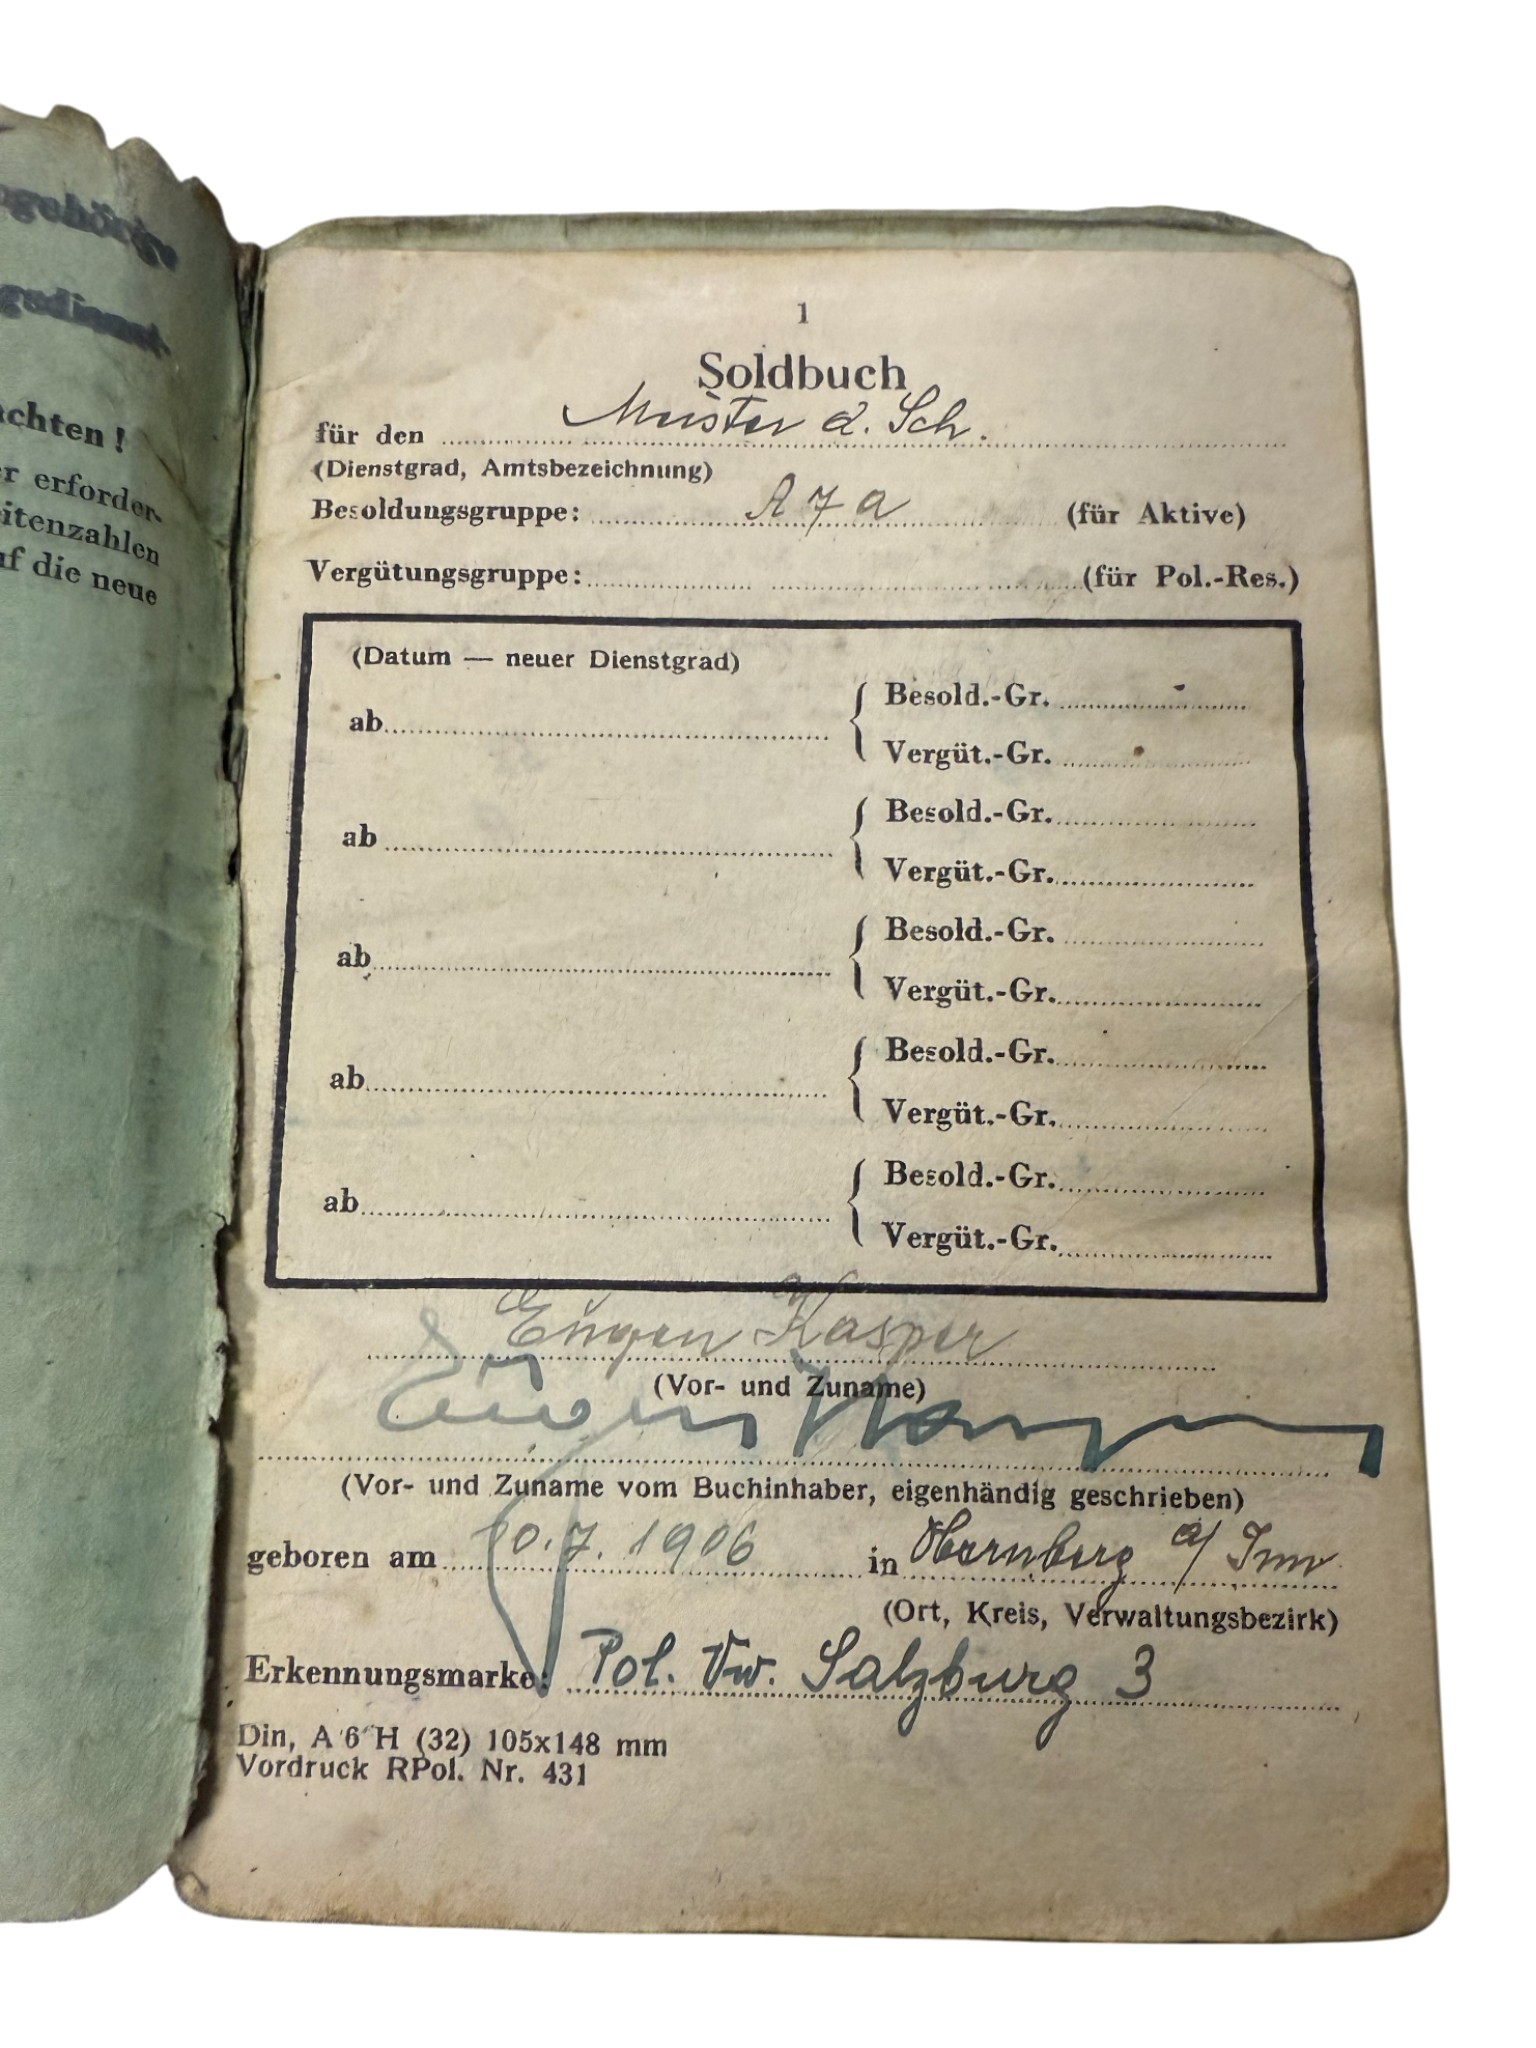 gehörige
gsdienst
achten !
r erforder-
eitenzahlen
uf die neue
1
Soldbuch
für den Meister d. Sch.
(Dienstgrad, Amtsbezeichnung)
Besoldungsgruppe: A 7 a (für Aktive)
Vergütungsgruppe: (für Pol.-Res.)
(Datum — neuer Dienstgrad)
Besold.-Gr.
ab
Vergüt.-Gr.
Besold.-Gr.
ab
Vergüt.-Gr.
Besold.-Gr.
ab
Vergüt.-Gr.
Besold.-Gr.
ab
Vergüt.-Gr.
Besold.-Gr.
ab
Vergüt.-Gr.
Eugen Kasper
(Vor- und Zuname)
Eugen Kasper
(Vor- und Zuname vom Buchinhaber, eigenhändig geschrieben)
geboren am 10.7.1906 in Obernberg a/ Inn
(Ort, Kreis, Verwaltungsbezirk)
Erkennungsmarke: Pol. Vw. Salzburg 3
Din, A 6 H (32) 105x148 mm
Vordruck RPol. Nr. 431